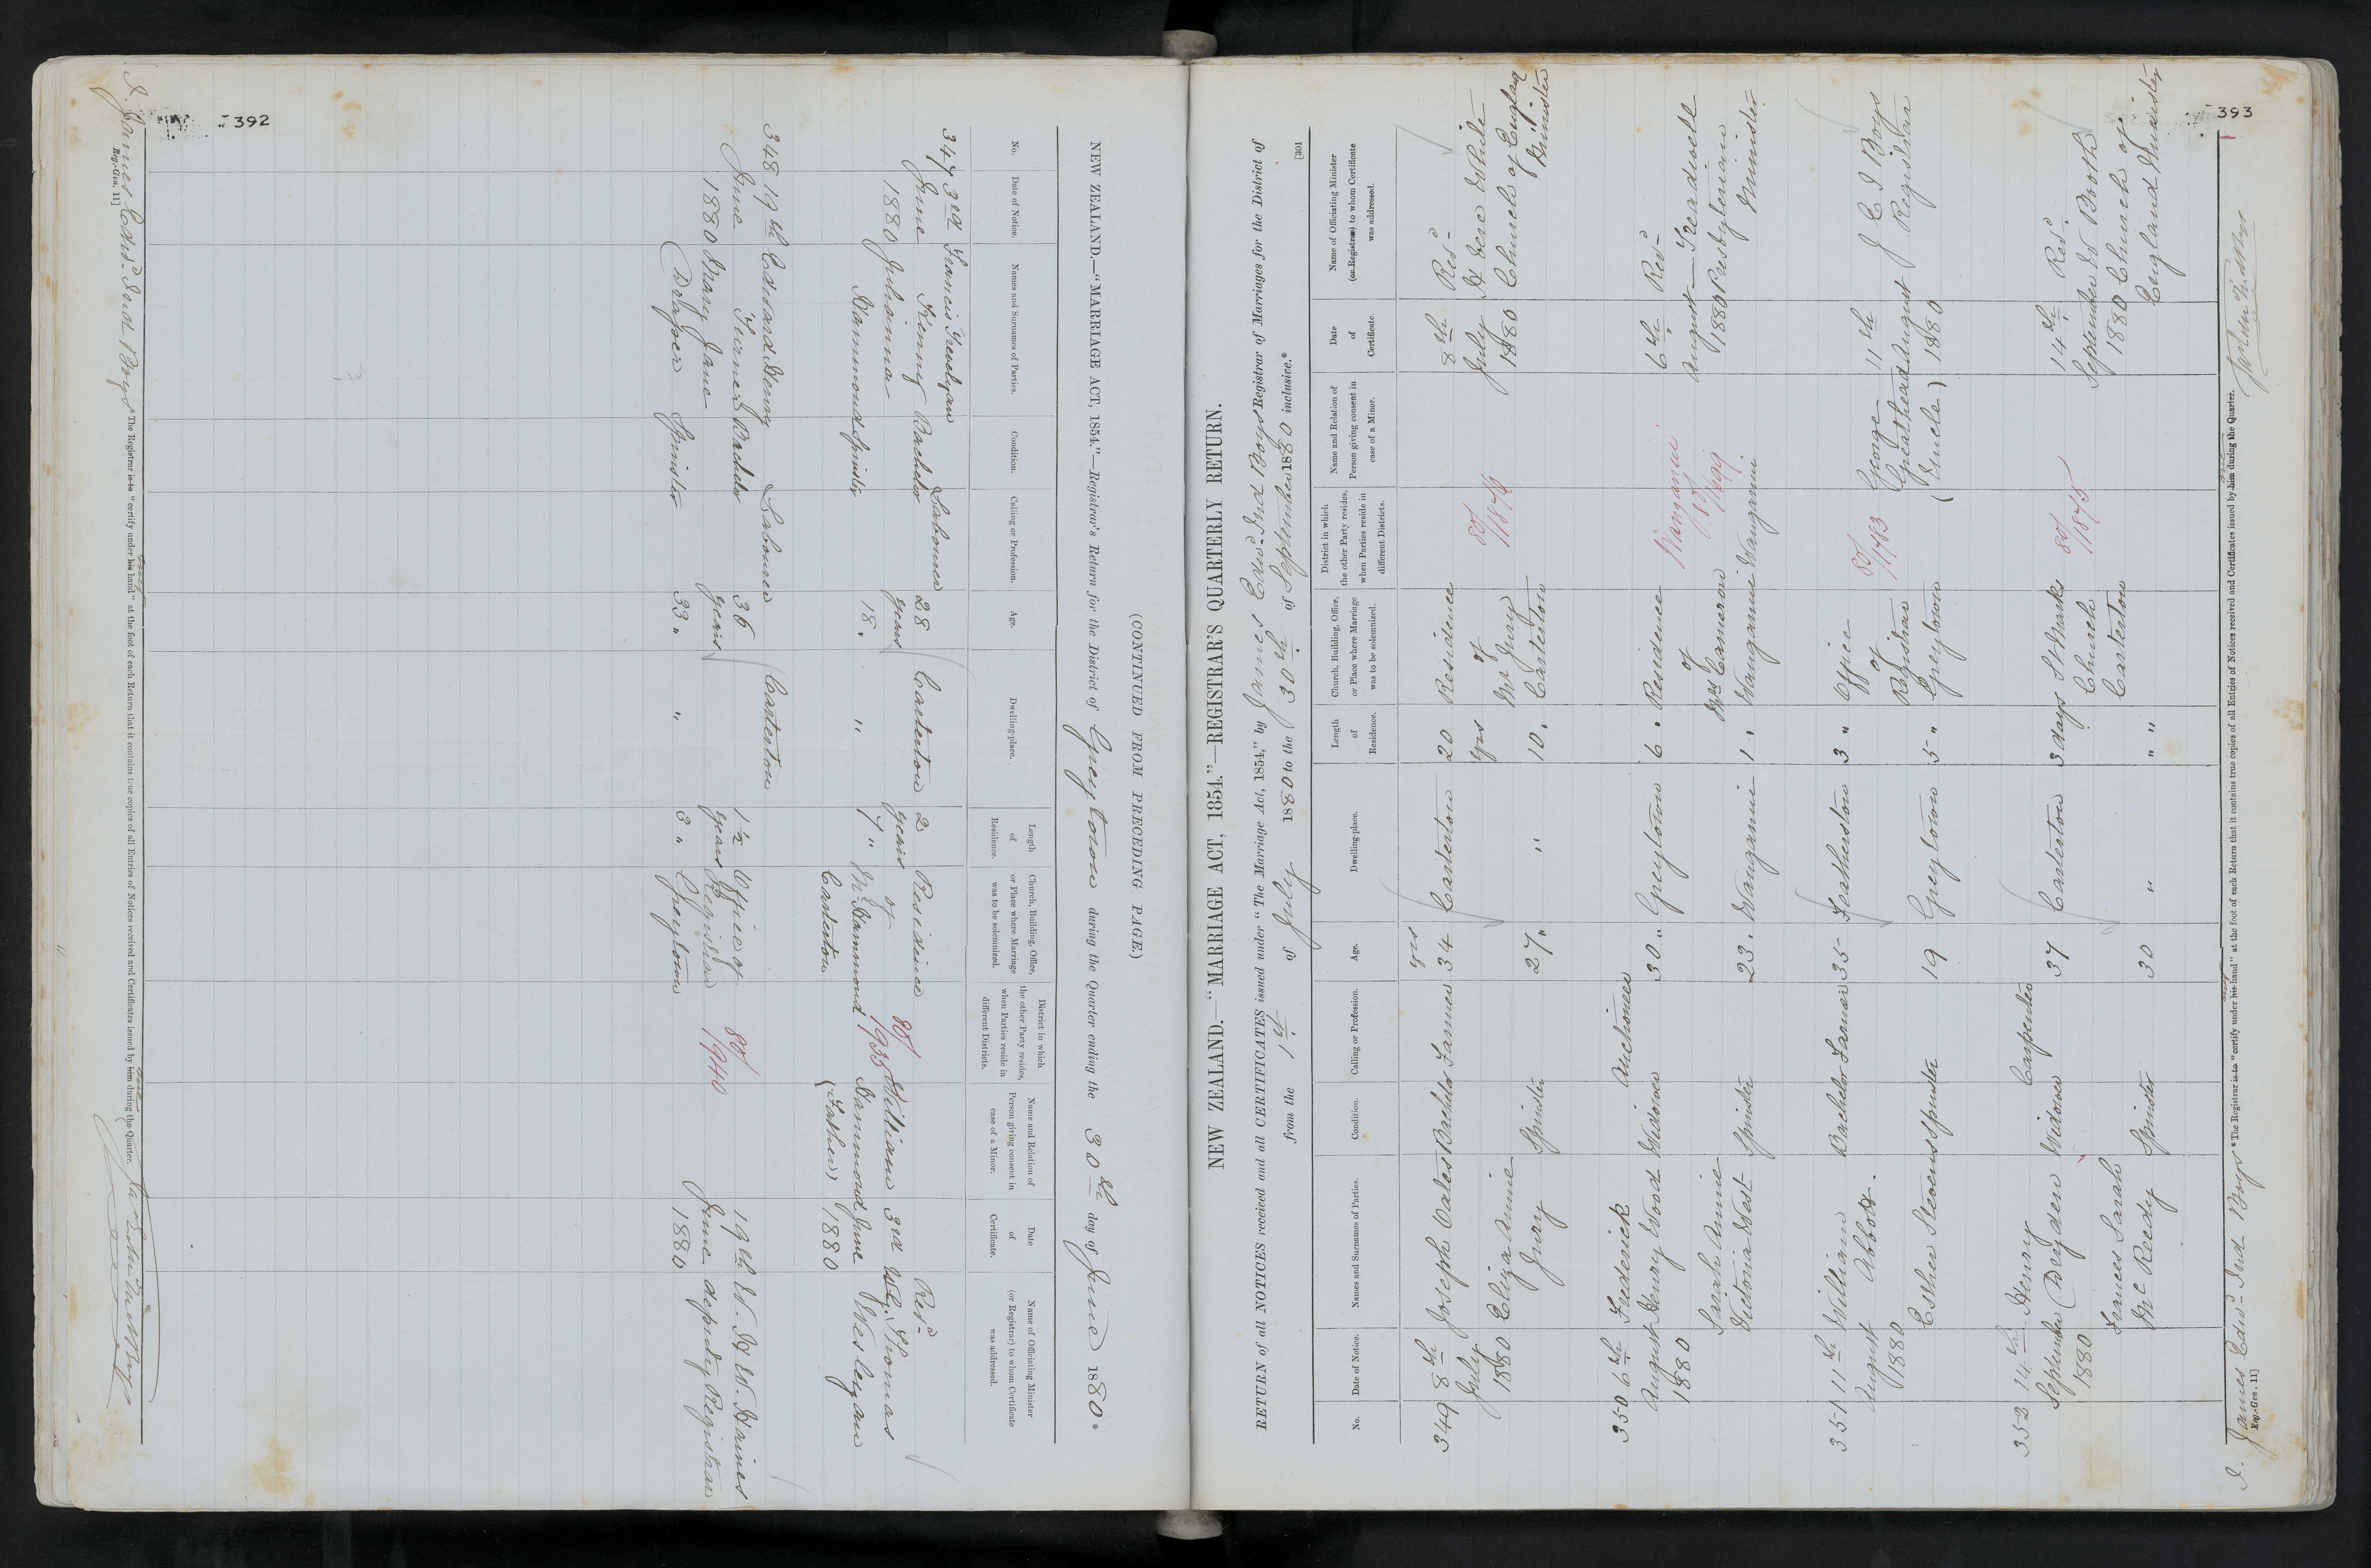 392
(CONTINUED FROM PRECEDING PAGE.)
NEW ZEALAND.—"MARRIAGE ACT, 1854."—Registrar's Return for the District of Greytown during the Quarter ending the 30th day of June 1880*
No.
Date of Notice.
Names and Surnames of Parties.
Condition.
Calling or Profession.
Age.
Dwelling-place.
Length
of
Residence.
Church, Building, Office,
or Place where Marriage
was to be solemnized.
District in which
the other Party resides,
when Parties reside in
different Districts.
Name and Relation of
Person giving consent in
case of a Minor.
Date
of
Certificate.
Name of Officiating Minister
(or Registrar) to whom Certificate
was addressed.
347 3rd
June
1880
Francis Trevelyan
Kenny
Julianna
Hammond
Bachelor
Spinster
Labourer
28
years
18 "
Carterton
"
2
years
7 "
Residence
of
Mr Hammond
Carterton
80/
1935
William
Hammond
(Father)
3rd
June
1880
Revd
Wm. Thomas
Wesleyan
348 19th
June
1880
Edward Henry
Turner
Mary Jane
Bachelor
Spinster
Labourer
36
years
33 "
Carterton
"
1½
years
3 "
Office of
Registrar
Greytown
80/
1940
19th
June
1880
W. H. W. Haines
deputy Registrar
I. James Edwd Ind Boys
* The Registrar is to "certify under his hand" at the foot of each Return that it contains true copies of all Entries of Notices received and Certificates issued by him during the Quarter.
Reg.-Gen. 11]
393
[301
NEW ZEALAND.—"MARRIAGE ACT, 1854."—REGISTRAR'S QUARTERLY RETURN.
RETURN of all NOTICES received and all CERTIFICATES issued under "The Marriage Act, 1854," by James Edwd Ind Boys Registrar of Marriages for the District of
from the 1st of July 1880 to the 30th of September 1880 inclusive.*
No.
Date of Notice.
Names and Surnames of Parties.
Condition.
Calling or Profession.
Age.
Dwelling-place.
Length
of
Residence.
Church, Building, Office,
or Place where Marriage
was to be solemnized.
District in which
the other Party resides,
when Parties reside in
different Districts.
Name and Relation of
Person giving consent in
case of a Minor.
Date
of
Certificate.
Name of Officiating Minister
(or Registrar) to whom Certificate
was addressed.
349 8th
July
1880
Joseph Oates
Eliza Annie
Jury
Bachelor
Spinster
Farmer
yrs
34
27 "
Carterton
"
20
yrs
10 "
Residence
of
Mr Jury
Carterton
80/
1876
8th
July
1880
Revd
Church of England
Minister
350 6th
August
1880
Frederick
Henry Wood
Sarah Annie
Victoria West
Widower
Spinster
Auctioneer
30 "
23 "
Greytown
Wanganui
6 "
1 "
Residence
of
Mrs Cameron
Wanganui
Wanganui
Wanganui
80/
6th
August
1880
Revd
Treadwell
Presbyterian
Minister
351 11th
August
1880
William
Abbott
Esther Stevens
Bachelor
Spinster
Farmer
35
19
Featherston
Greytown
3 "
5 "
Office
of
Registrar
Greytown
80/
1783
George
Greathead
(Uncle)
11th
August
1880
J E I Boys
Registrar
352 14th
September
1880
Henry
Dryden
Frances Sarah
McReedy
Widower
Spinster
Carpenter
37
30
Carterton
"
3 days
" "
St Marks
Church
Carterton
80/
1875
14th
September
1880
Revd
W Booth
Church of
England Minister
I. James Edwd Ind Boys
* The Registrar is to "certify under his hand" at the foot of each Return that it contains true copies of all Entries of Notices received and Certificates issued by him during the Quarter.
Reg.-Gen. 11]